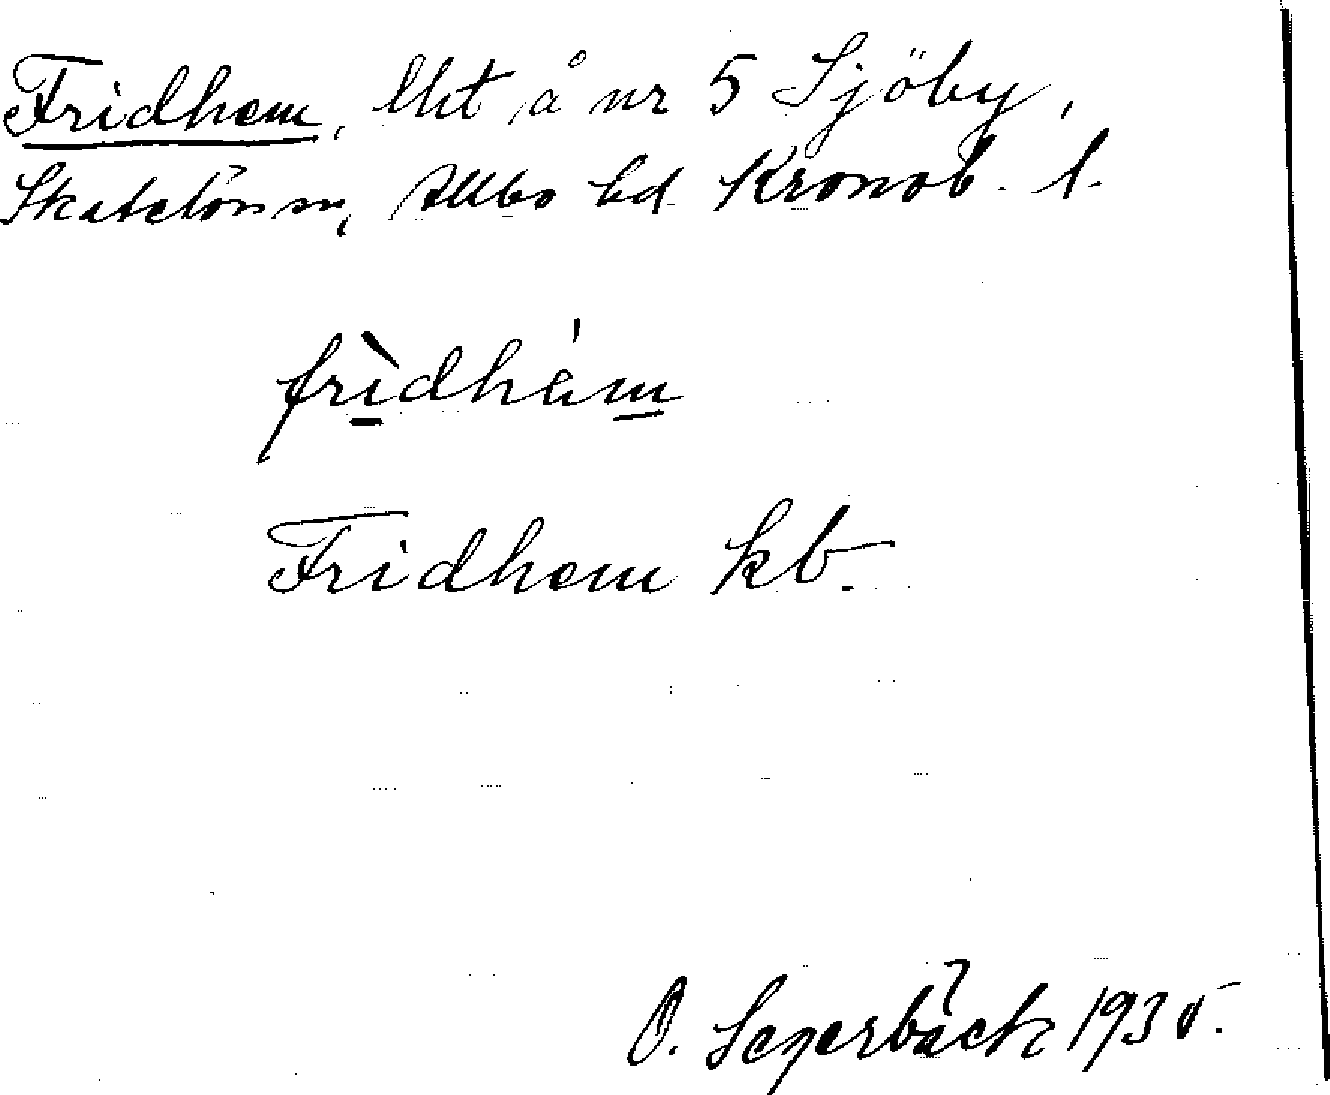 Fridhem, lht å nr 5 Sjöby,
Skatelövs sn, Allbo hd Kronob. l.
frìdhám
Fridhem kb.
O. Segerbäck 1935.